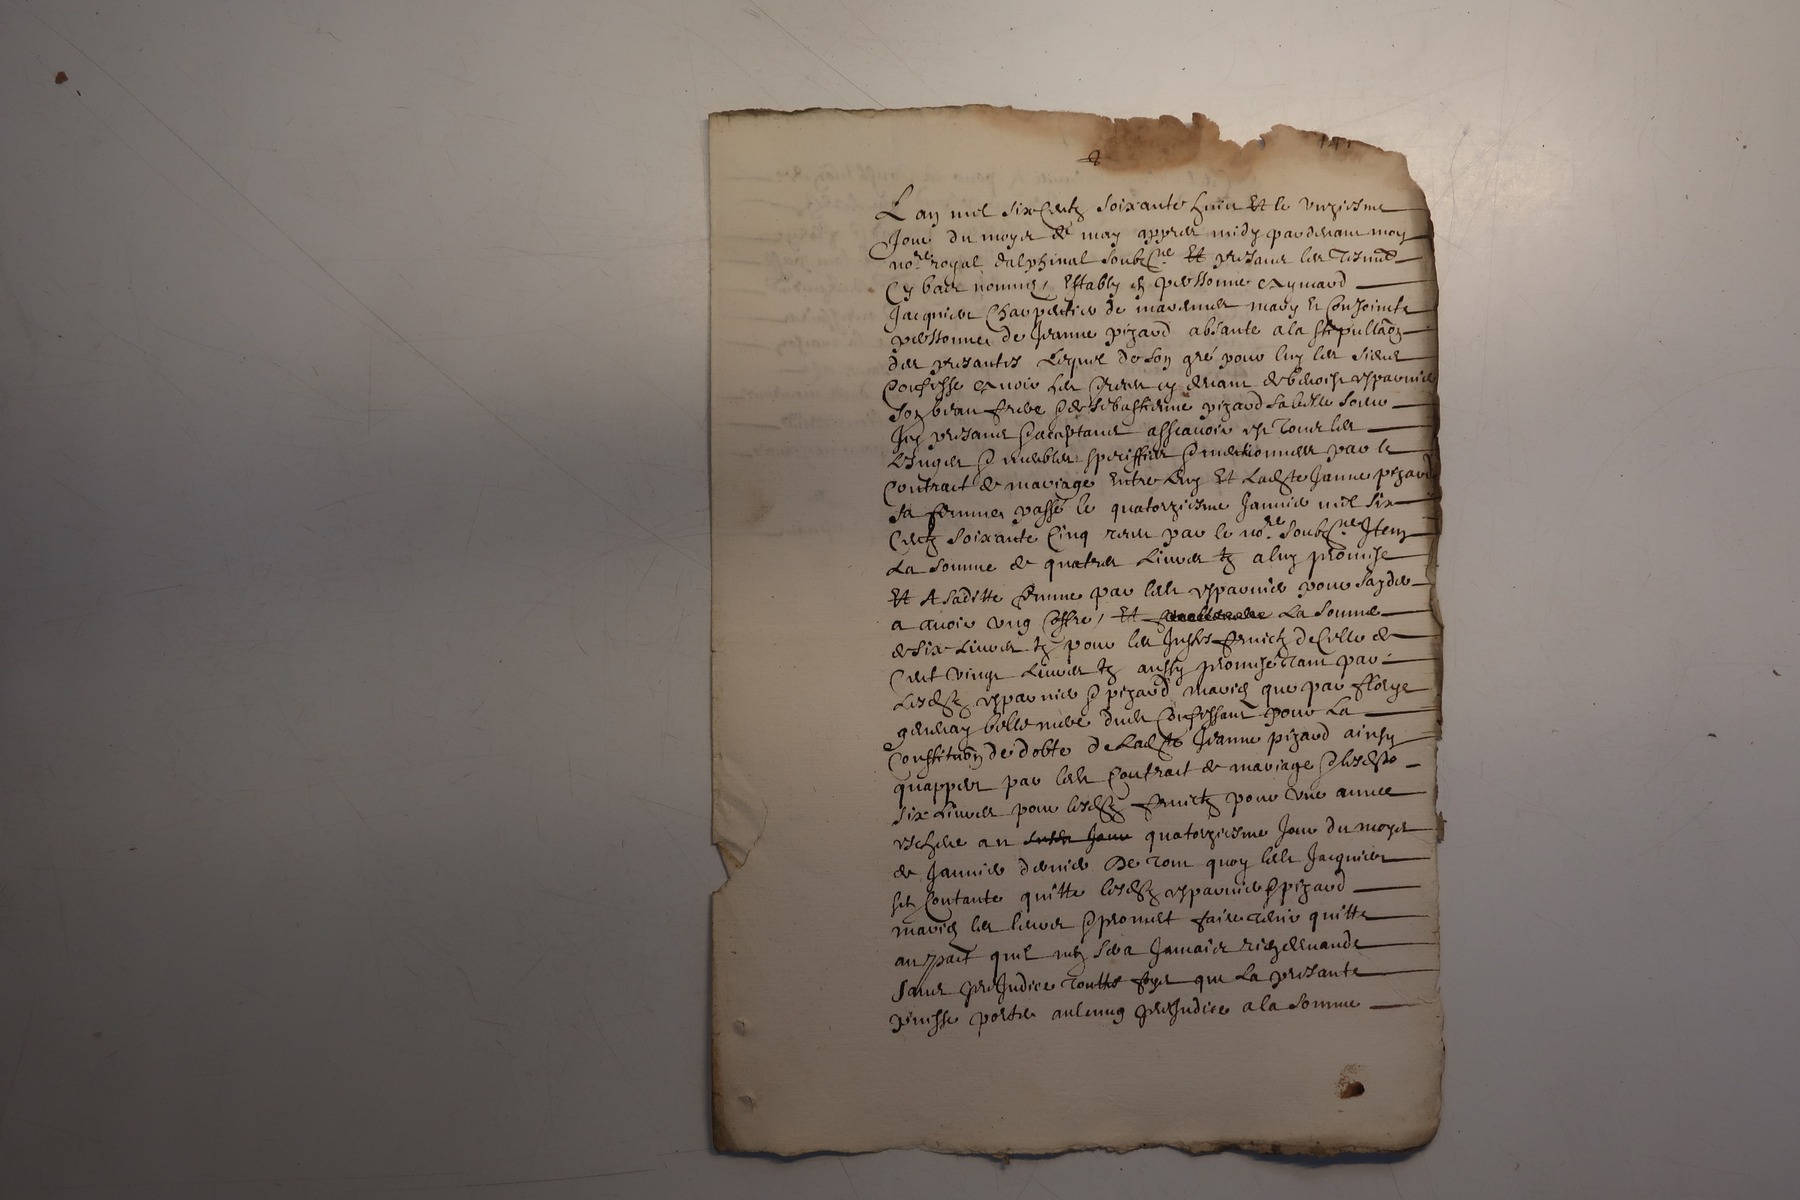 Lan mil six centz soixante huict Et le unziesme
Jour du moys de may appres midy pardevant moy
no.re royal dalphinal soubz.ne Et presans les tesm.
Cy bas nommes, Estably en personne Eymard
Jacquier Charpentier de mary et Conjointe
personne de Jeanne pizard absante a la stipullaon
des presantes Lequel de son gré pour luy les siens
Confesse avoir heu cy devant de
son beau frere & de sebastienne pizard sa belle soeur
Icy presans & aceptans assavoir Et tous les
Linges & meubles speciffies & mentionnes par le
Contract de mariage Entre luy Et Ladte Janne pizard
sa femme, passé le quatorziesme Janvier mil six
Centz soixante Cinq receu par le no.re soubz.ne Item
La somme de quatres Livres tz a luy promise
Et A saditte femme par led pour sayder
a avoir ung coffre, Et La somme
de six Livres tz pour les Justes fruictz de Celle de
Cent vingt Livres tz aussy promise tant par
Lesdtz & pizard maries que par
belle mere dud Confessant pour La
Constituon de dobte de Ladte Jeanne pizard ainsy
quappert par led Contract de mariage & lesdtes
six Livres pour lesdtz fruictz pour une année
escheue au quatorziesme Jour du moys
de Janvier dernier De tout quoy led Jacquier
se Contante quitte lesdtz & pizard
maries les leurs & promet faire tenir quitte
au pact quil nen sera Jamais rien demandé
sans prejudice touttes foys que La presante
puisse porter aulcung prejudice a la somme